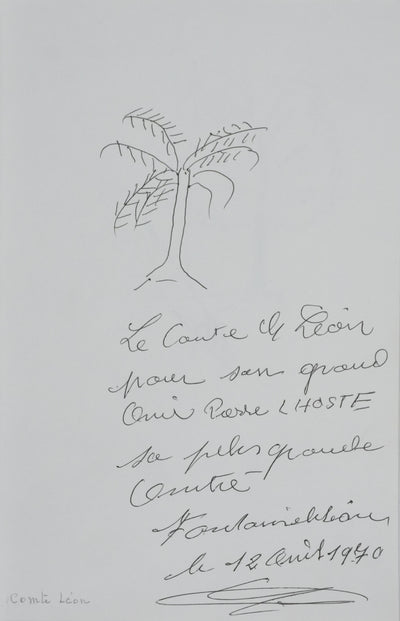 Le Comte Ch Léon
pour son grand
Ami Pierre LHOSTE
sa plus grande
Amitié
Fontainebleau,
le 12 Avril 1970
Comte Léon